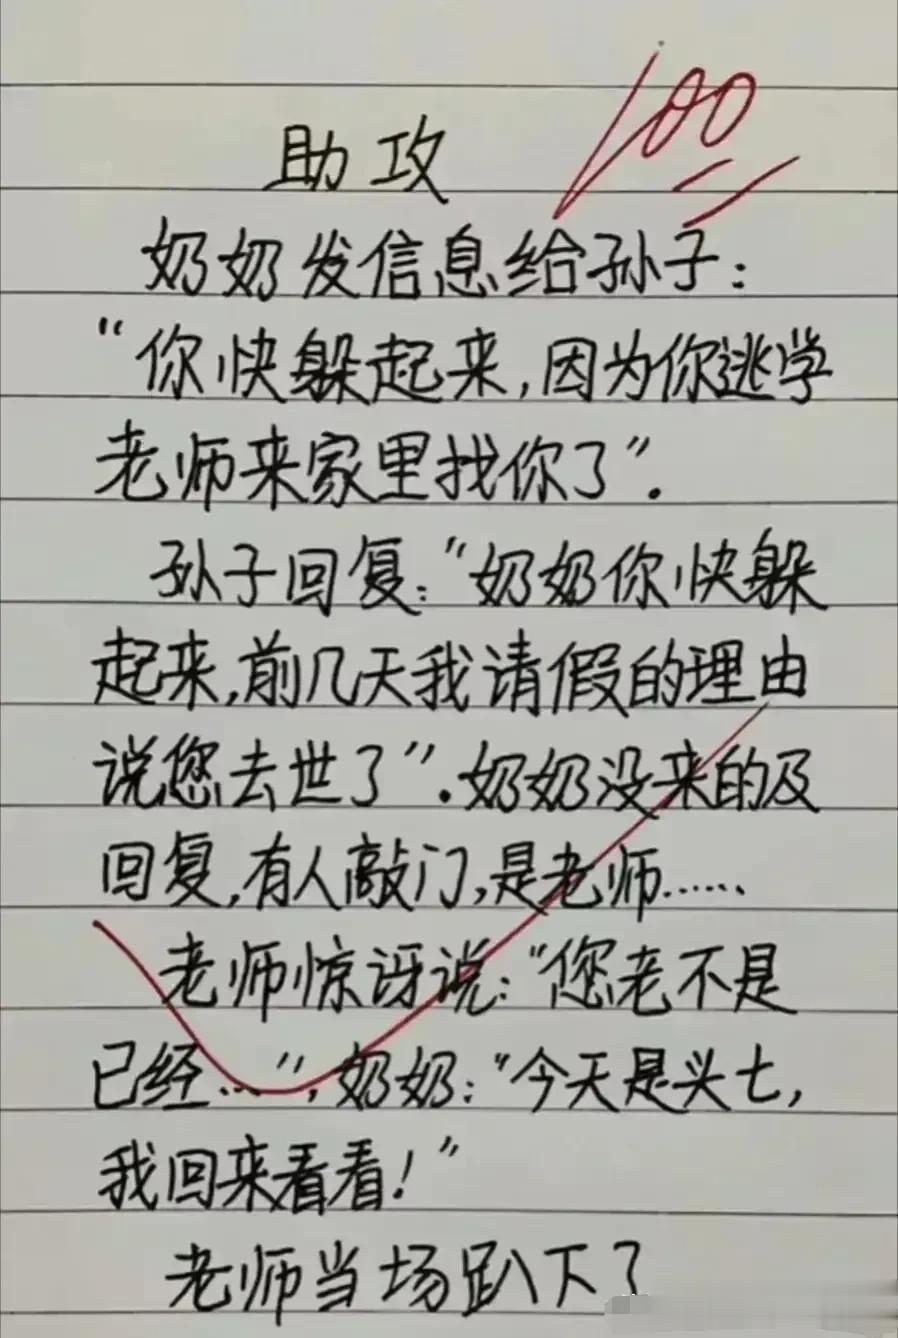 100
助攻
奶奶发信息给孙子：
“你快躲起来，因为你逃学
老师来家里找你了”.
孙子回复：“奶奶你快躲
起来，前几天我请假的理由
说您去世了”.奶奶没来的及
回复，有人敲门，是老师……
老师惊讶说：“您老不是
已经…”，奶奶：“今天是头七，
我回来看看！”
老师当场趴下了